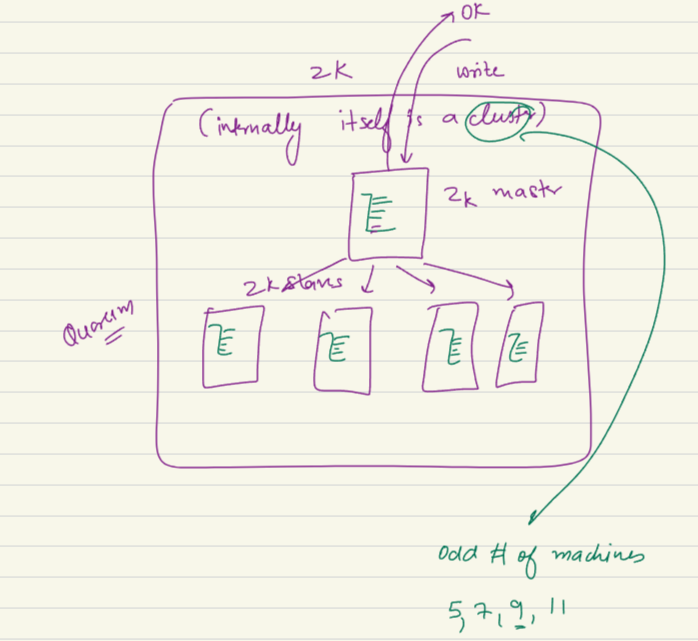 OK
ZK
write
(internally itself is a cluster)
ZK master
ZK slaves
Quorum
Odd # of machines
5, 7, 9, 11